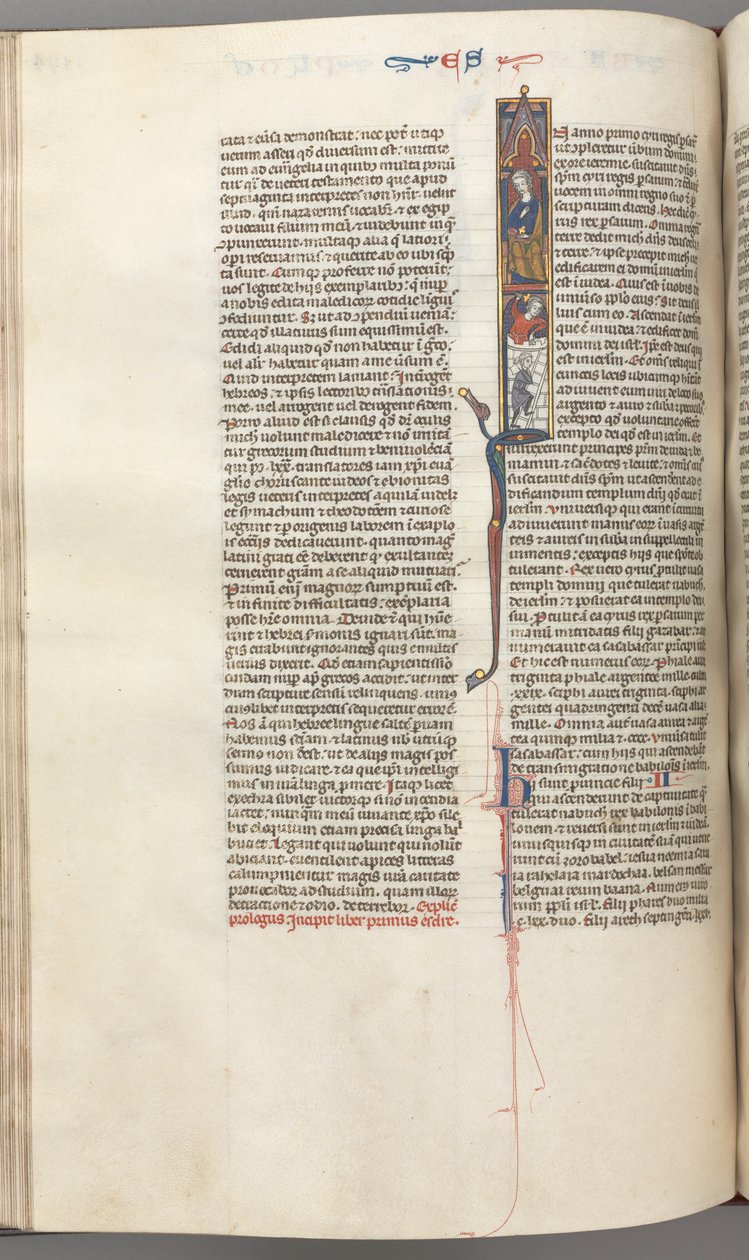 ES
rata & euersa demonstrat: nec pot̄ utiq;
uerum asseri qd̄ diuersum est: mittite
eum ad euāngelia in quib; multa ponū
tur q̄ de ueteri testamento que apud
septuaginta interpretes non hn̄t: uelut
illud. qm̄ nazarenus uocabit̄ & ex egip
to uocaui filium meū. & uidebunt in q̄
ɔpunxerunt. multaq; alia q̄ latiori
opi reseruamus: & querite ab eo ubi scp̄
ta sunt. Cumq; proferre non potuerit:
uos legite de hijs exemplarib; q̄ nup
a nobis edita maledicor̄ cotidie ligui
ɔfodiuntur. Sz ut ad ɔpendiū ueniā:
certe qd̄ illaturus sum equissimū est.
Edidi aliquid qd̄ non habetur ī greco:
uel alit̄ habetur quam a me uersum ē.
Quid interpretem laniant: Int̄rogent
hebreos: & ipsis lectorib; trāslationis
mee. uel arrogent uel derogent fidem.
Porro aliud est si clausis qd̄ dr̄ oculis
mich̄ uolunt maledicere & nō imitā
tur grecorum studium & beniuolēciā
qui p̄ .lxx. translatores iam xp̄i euā
glio choruscante iudeos & ebionitas
legis ueteris interpretes aquilā uidelz
et symachum & theodotōem & curiose
legunt & p̄ origenis laborem ī exaplo
is eccl̄iis dedicauerunt. quanto maḡ
latini grati ec̄ deberent q̄ exultantē
cernerent greciā a se aliquid mutuari.
Primū eni magnor̄ sumptuū est.
& infinite difficultatis: exēplaria
posse hr̄e omnia. Deinde & qui hn̄e
rint & hebrei sermonis ignari sūt. ma
gis errabunt ignorantes quis e multis
uerius dixerit. Qd̄ etiam sapientissīo
cuidam nup ap̄ grecos accidit. ut inter
dum scripture sensū relinquens. unius
cuiuslibet interpretis sequeretur errorē.
Nos ā qui hebree lingue saltē p̄uam
habemus sciam. & latinus nob̄ utcūq;
sermo non deest. ut de alijs magis pos
sumus iudicare & ea que ipi intelligi
mus in nr̄a linga p̄mere. Itaq; licet
excetra sibilet uictorq; sinon incendia
iactet. nunqm̄ meū iuuante xp̄o sile
bit eloquium etiam precisa linga bal
buciet. Legant qui uolunt qui nolunt
abiciant. euentilent apices litteras
calumpnientur magis ura caritate
prouocabor ad studium. quam illor̄
detractione & odio. deterrebor. Explic̄
prologus Incipit liber primus esdre.
In anno primo cyri regis psar̄
ut ɔpleretur ūbum domini
ex ore ieremie. suscitauit dn̄s
sp̄m cyri regis psarum: & t̄duxit
uocem in omni regno suo & p̄
scripturam dicens. Hec dic̄ cy
rus rex psarum. Omnia regna
terre dedit mich̄ dn̄s deus celi
& terre. & ipse precepit mich̄ ut
edificarem ei domū in ierlm̄ q̄
est ī iudea. Quis est ī uobis de
uniuso pplo eius: Sit deus il
lius cum eo. Ascendat ī ierlm̄
que ē in iudea: & edificet dom̄
domini dei isrl̄. Ip̄e est deus qui
est in ierlm̄. Et om̄s reliqui ī
cunctis locis ubicumq; hitāt
adiuuent eum uiri de loco suo
argento & auro & suba & pecorib;
excepto qd̄ uoluntarie offert
templo dei qd̄ est in ierlm̄. Et
surrexerunt principes pr̄m de iuda & be
niamin. & sac̄dotes & leuite. & om̄is cui
suscitauit dn̄s sp̄m ut ascenderet ad e
dificandum templum dn̄i qd̄ erat ī
ierlm̄. Vniuersiq; qui erant ī circuitu
adiuuerunt manus eor̄ ī uasis argē
teis & aureis in suba in suppellectili in
iumentis: exceptis hijs que spōte ob
tulerant. Rex uero cyrus ptulit uasa
templi domini que tulerat nabuch̄.
de ierlm̄ & posuerat ea in templo dei
sui. Ptulit ā ea cyrus rex psarum per
manū mitridatis filij gazabar: & an
numerauit ea sasabassar p̄ncipi iude
Et hic est numerus eor̄. Phiale auree
triginta phiale argentee mille. cultri
xxix. sciphi aurei triginta. sciphi ar
gentei quadringenti decē uasa alia:
mille. Omnia aut̄ uasa aurea & argē
tea quinq; milia & .cccc. Vniusa tulit
sasabassar: cum hijs qui ascendebāt
de transmigratione babilonis ī ierlm̄.
Hij sunt prouincie filij II
qui ascenderunt de captiuitate q̄
tulerat nabuch̄ rex babilonis ī babi
lonem. & reuersi sunt in ierlm̄ & iudeā.
unusquisq; in ciuitatē suā qui uene
runt cū zorobabel: iesua neemia sara
ia rahelaia mardochaa. belsan messar
belguai reum baana. Numerus uiro
rum ppli isrl̄. Filij phares duo milia
c. lxx. duo. Filij arech septingēti. lxxv.